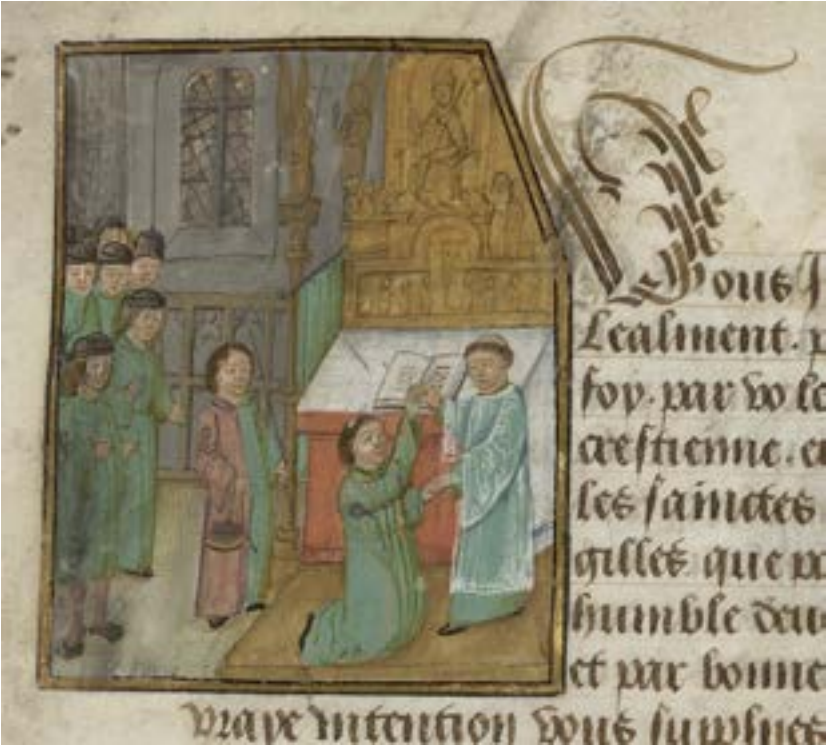 Vous J
lealment. p
foy. par vo le
crestienne. et
les sainctes
gilles que po
humble deu
et par bonne
vraye intention vous supplies